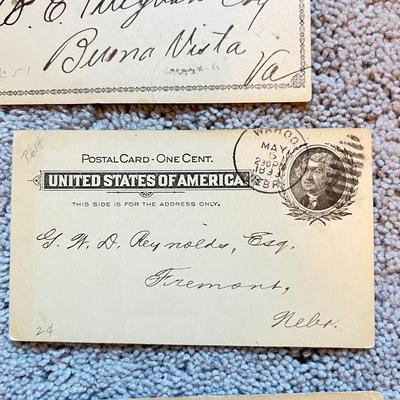 Buena Vista
Va
P6H
POSTAL CARD - ONE CENT.
UNITED STATES OF AMERICA.
THIS SIDE IS FOR THE ADDRESS ONLY.
WAHOO
MAY
5
230P
NEBR.
G. W. D. Reynolds, Esq.
Fremont,
Nebr.
2¢